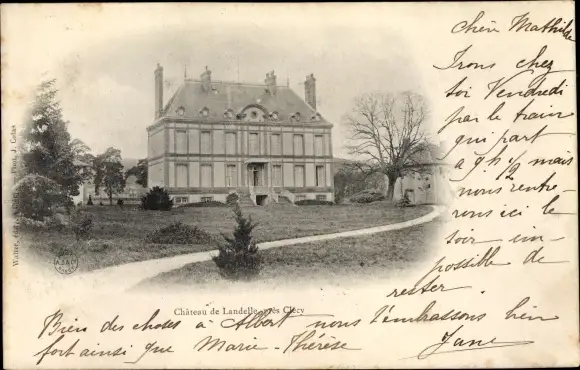 Chèn Mathilde
Irons chez
toi Vendredi
par le train
qui part
a 9h ½ mais
nous rentre-
rons ici le
soir im-
possible de
rester
Château de Landelle, près Clécy
Bien des choses à Albert nous t'embrassons bien
fort ainsi que Marie-Thérèse Jane
Phot. J. Catus